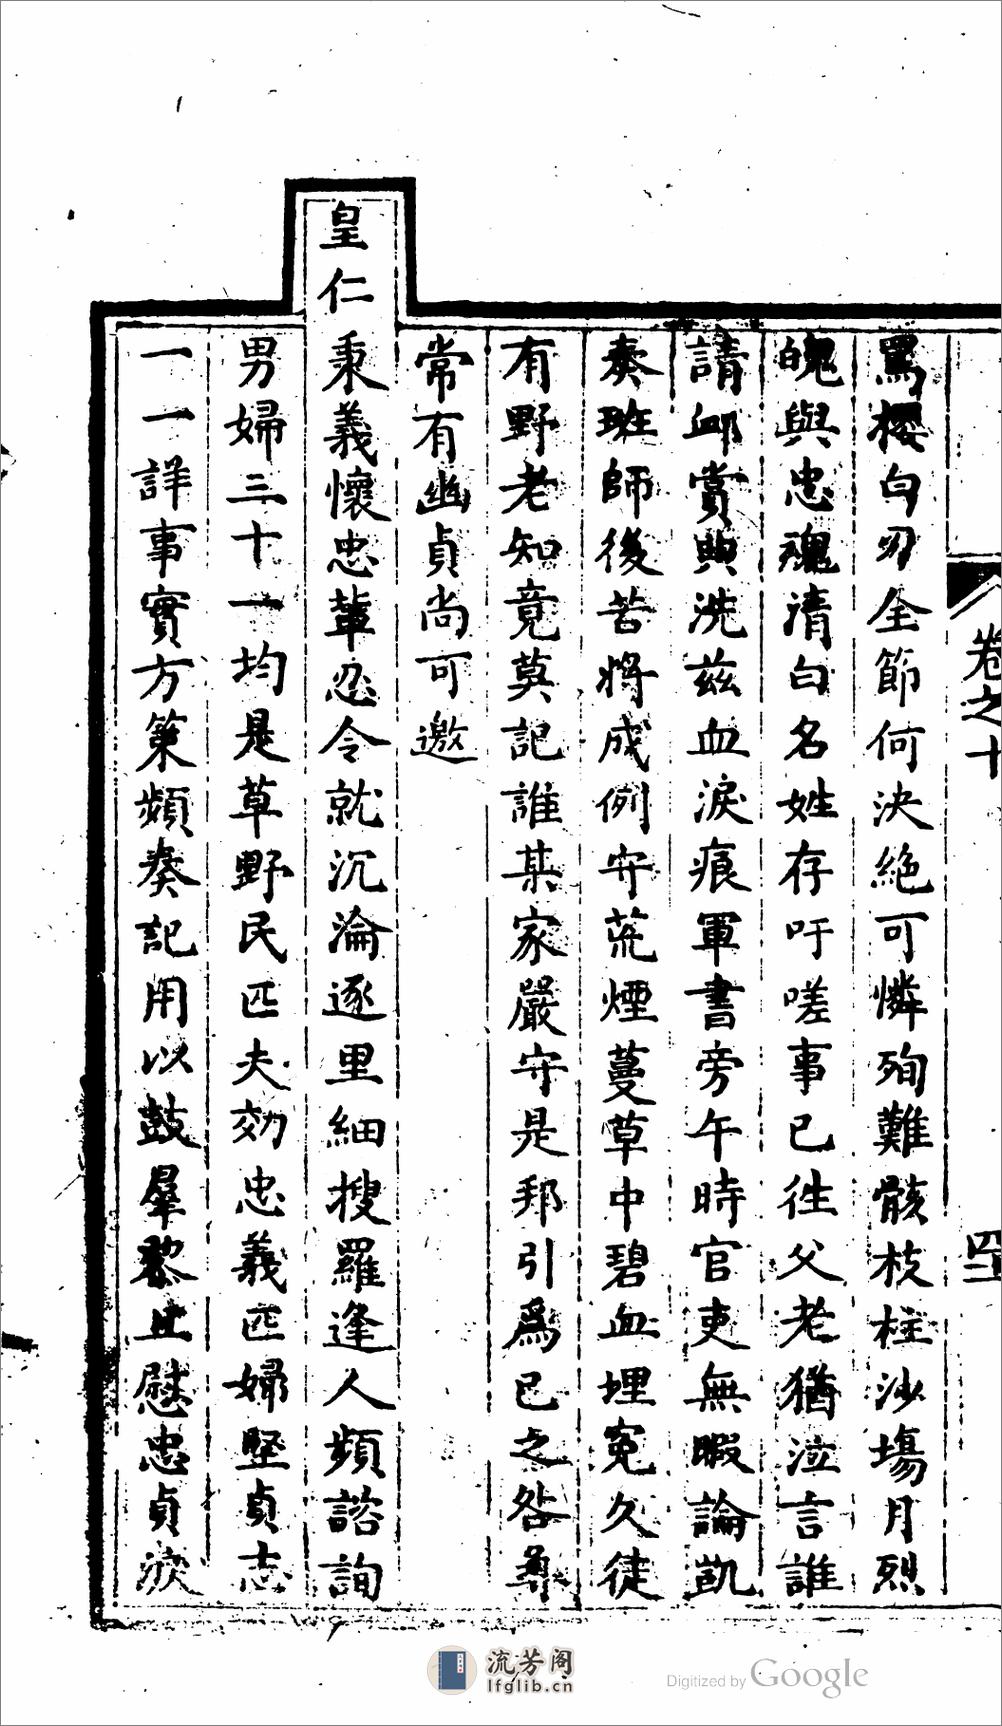 卷之十
四十二
罵櫻白刃全節何決絕可憐殉難骸枝柱沙塲月烈
魄與忠魂清白名姓存吁嗟事已徃父老猶泣言誰
請衈賞典洗兹血淚痕軍書旁午時官吏無暇論凱
奏班師後苦將成例守荒煙蔓草中碧血埋寃久徒
有野老知竟莫記誰某家嚴守是邦引為已之咎彝
常有幽貞尚可邀
皇仁秉義懷忠軰忍令就沉淪逐里細搜羅逢人頻諮詢
男婦三十一均是草野民匹夫効忠義匹婦堅貞志
一一詳事實方策頻奏記用以鼓羣黎且慰忠貞淚
流芳阁
lfglib.cn
Digitized by Google